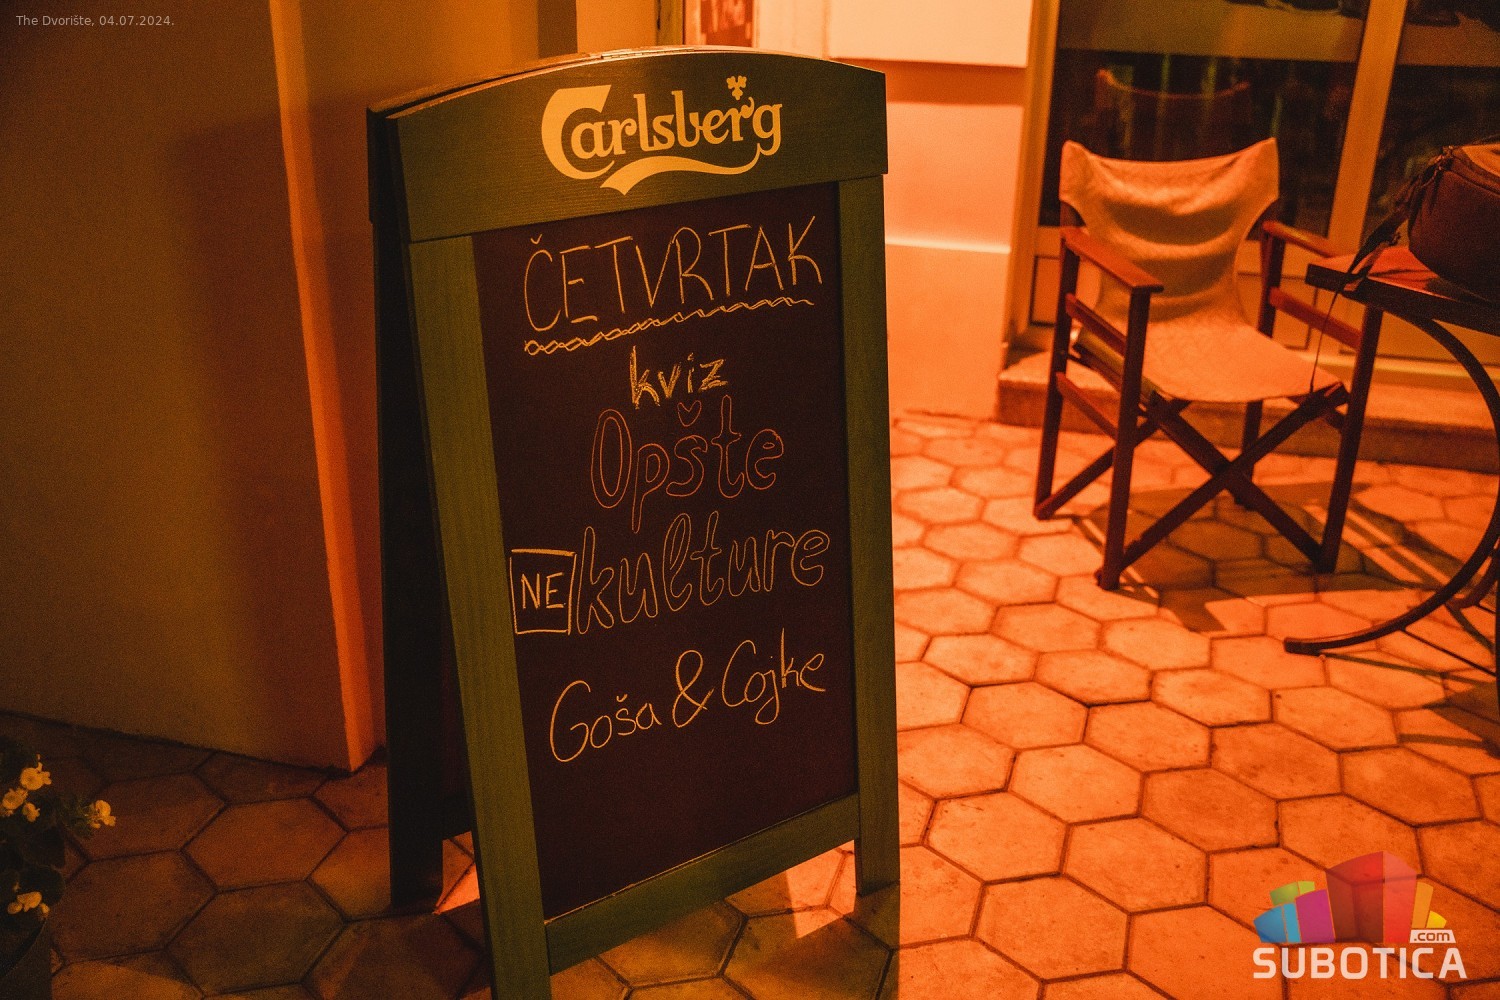 The Dvorište, 04.07.2024.
Carlsberg
ČETVRTAK
kviz
Opšte
NE kulture
Goša & Cojke
.com
SUBOTICA